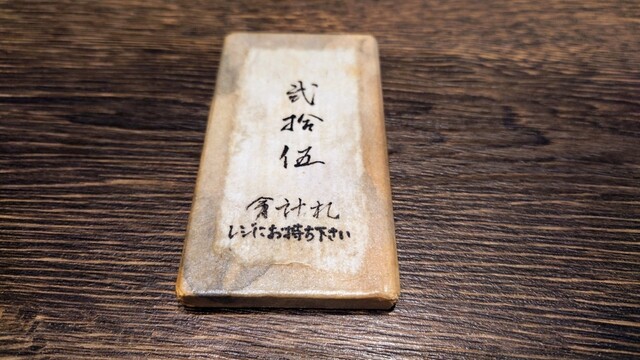 弐
拾
伍
會計札
レジにお持ち下さい